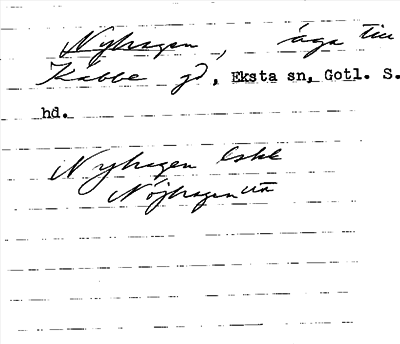 Nyhagen, äga till
Kabbe gd, Eksta sn, Gotl. S.
hd.
Nyhagen Eske
Nöjhagen uta